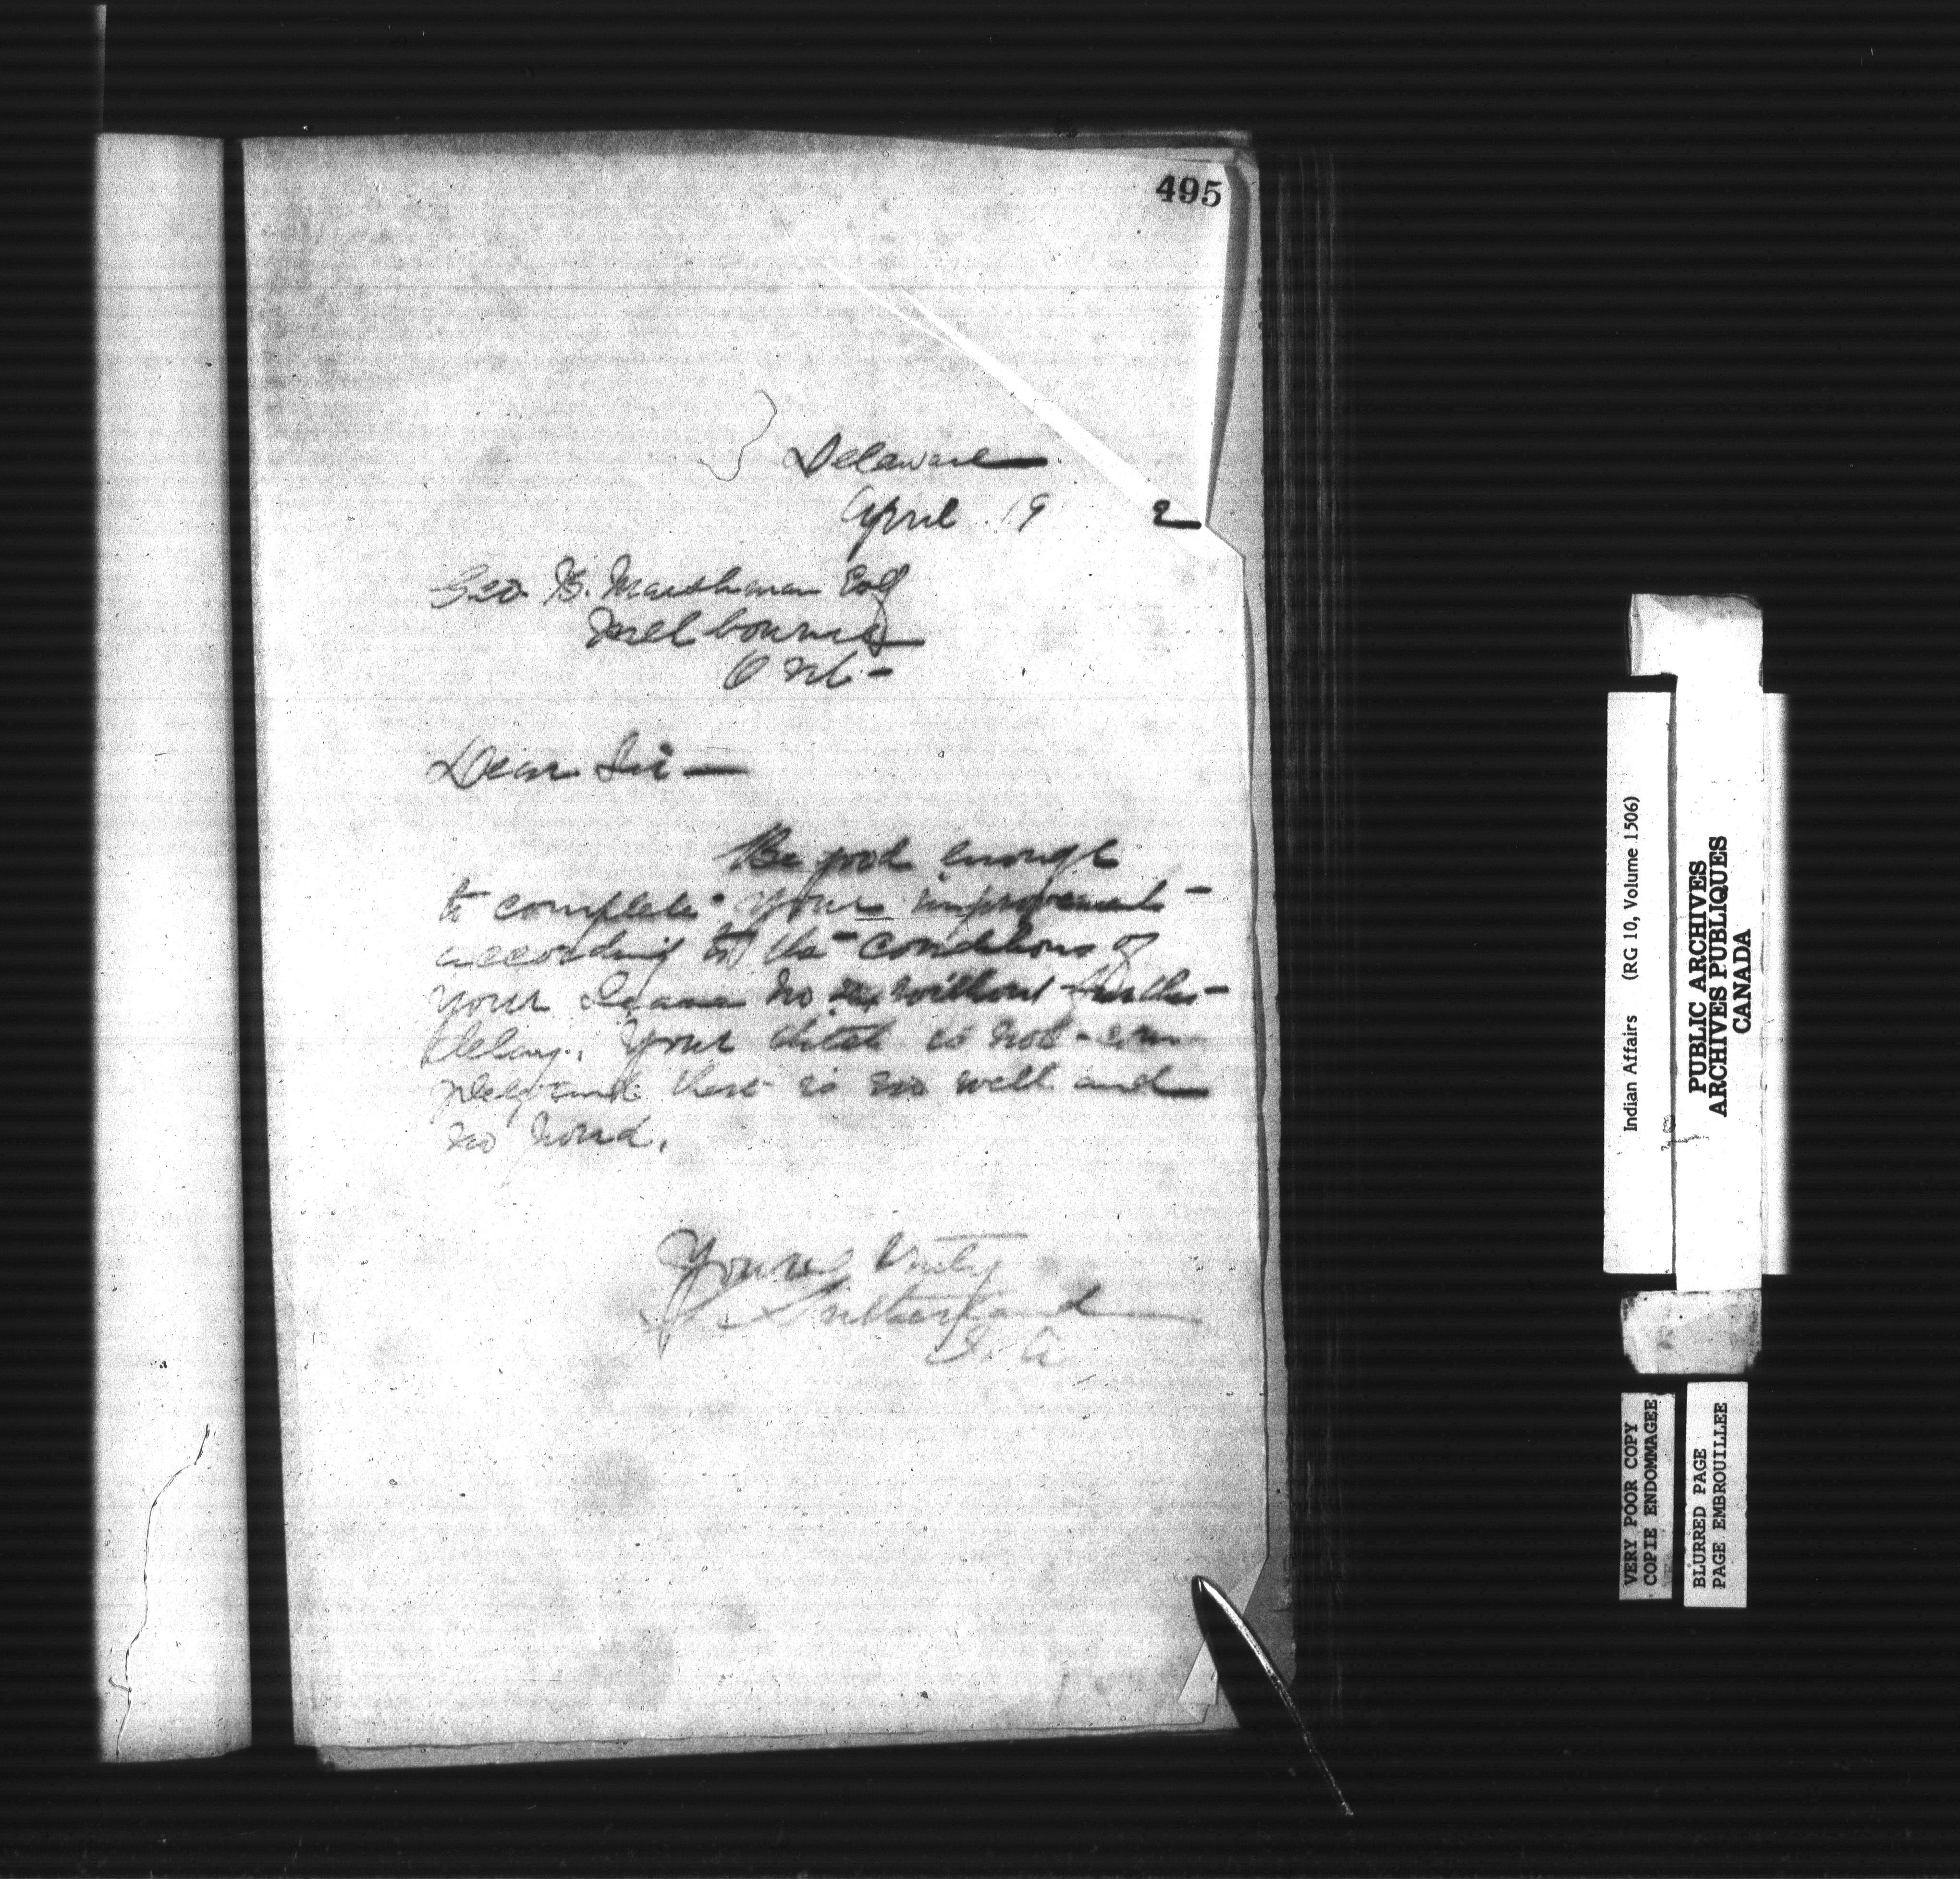 495
Delaware
April 19 2
Geo. B. Marshman Esq
Melbourne
Ont-
Dear Sir —
Be good enough
to complete your improvements
according to the conditions of
your Lease No without further
delay. Your ditch is not com
plete and there is no well and
no
Yours truly
Sutherland
I. A
Indian Affairs (RG 10, Volume 1506)
PUBLIC ARCHIVES
ARCHIVES PUBLIQUES
CANADA
VERY POOR COPY
COPIE ENDOMMAGEE
BLURRED PAGE
PAGE EMBROUILLEE